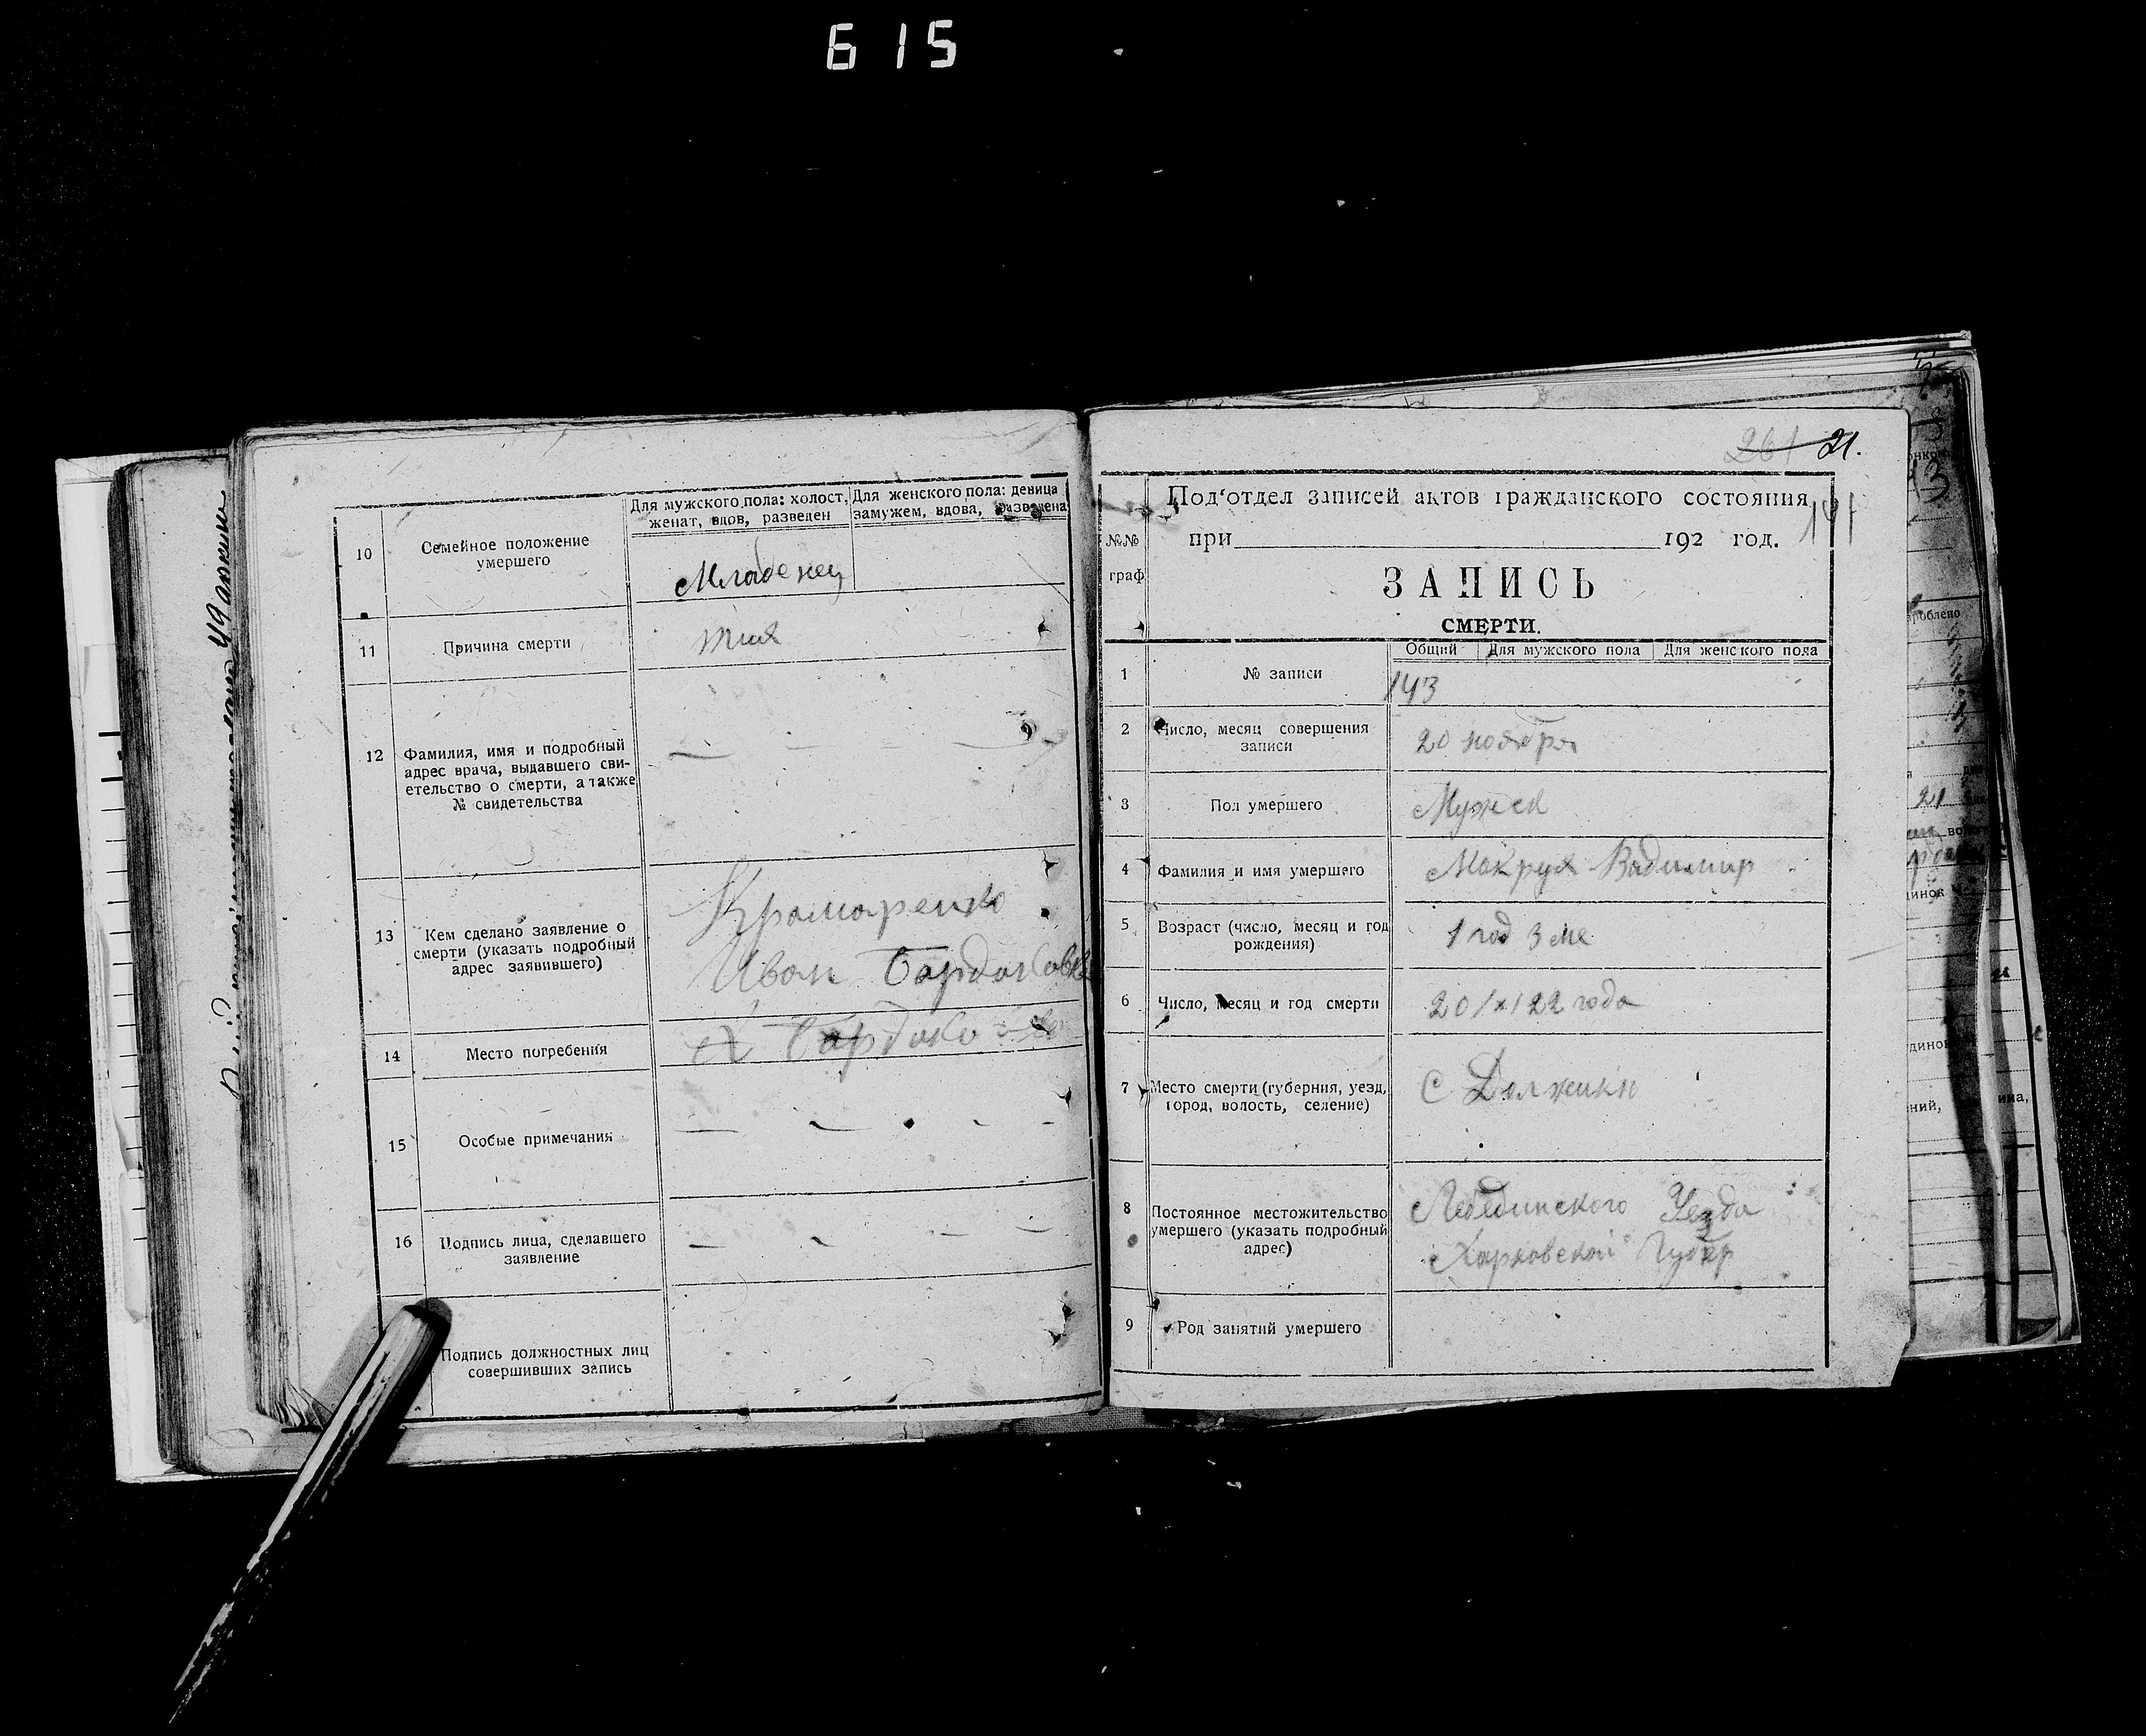 615
10 Семейное положение
умершего
Для мужского пола: холост,
женат, вдов, разведен
Для женского пола: девица
замужем, вдова, разведена
Младенец
11 Причина смерти
12 Фамилия, имя и подробный
адрес врача, выдавшего сви-
етельство о смерти, а также
№ свидетельства
— — —
13 Кем сделано заявление о
смерти (указать подробный
адрес заявившего)
Крамаренко
Иван
14 Место погребения
15 Особые примечания
16 Подпись лица, сделавшего
заявление
Подпись должностных лиц
совершивших запись
261 21.
Под‘отдел записей актов гражданского состояния
при 192 год.
№№
граф
ЗАПИСЬ
СМЕРТИ.
Общий Для мужского пола Для женского пола
1 № записи 143
2 Число, месяц совершения
записи
20 ноября
3 Пол умершего Мужск
4 Фамилия и имя умершего
5 Возраст (число, месяц и год
рождения)
1 год 3 ме
6 Число, месяц и год смерти 20/XI 22 года
7 Место смерти (губерния, уезд,
город, волость, селение)
С Должики
8 Постоянное местожительство
умершего (указать подробный
адрес)
Лебединского Уезда
Харковской Губер
9 Род занятий умершего